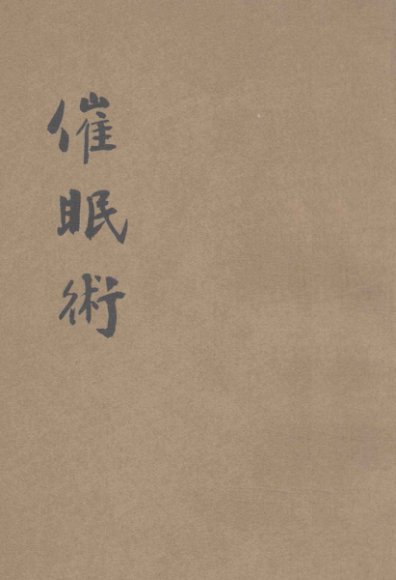 催眠術